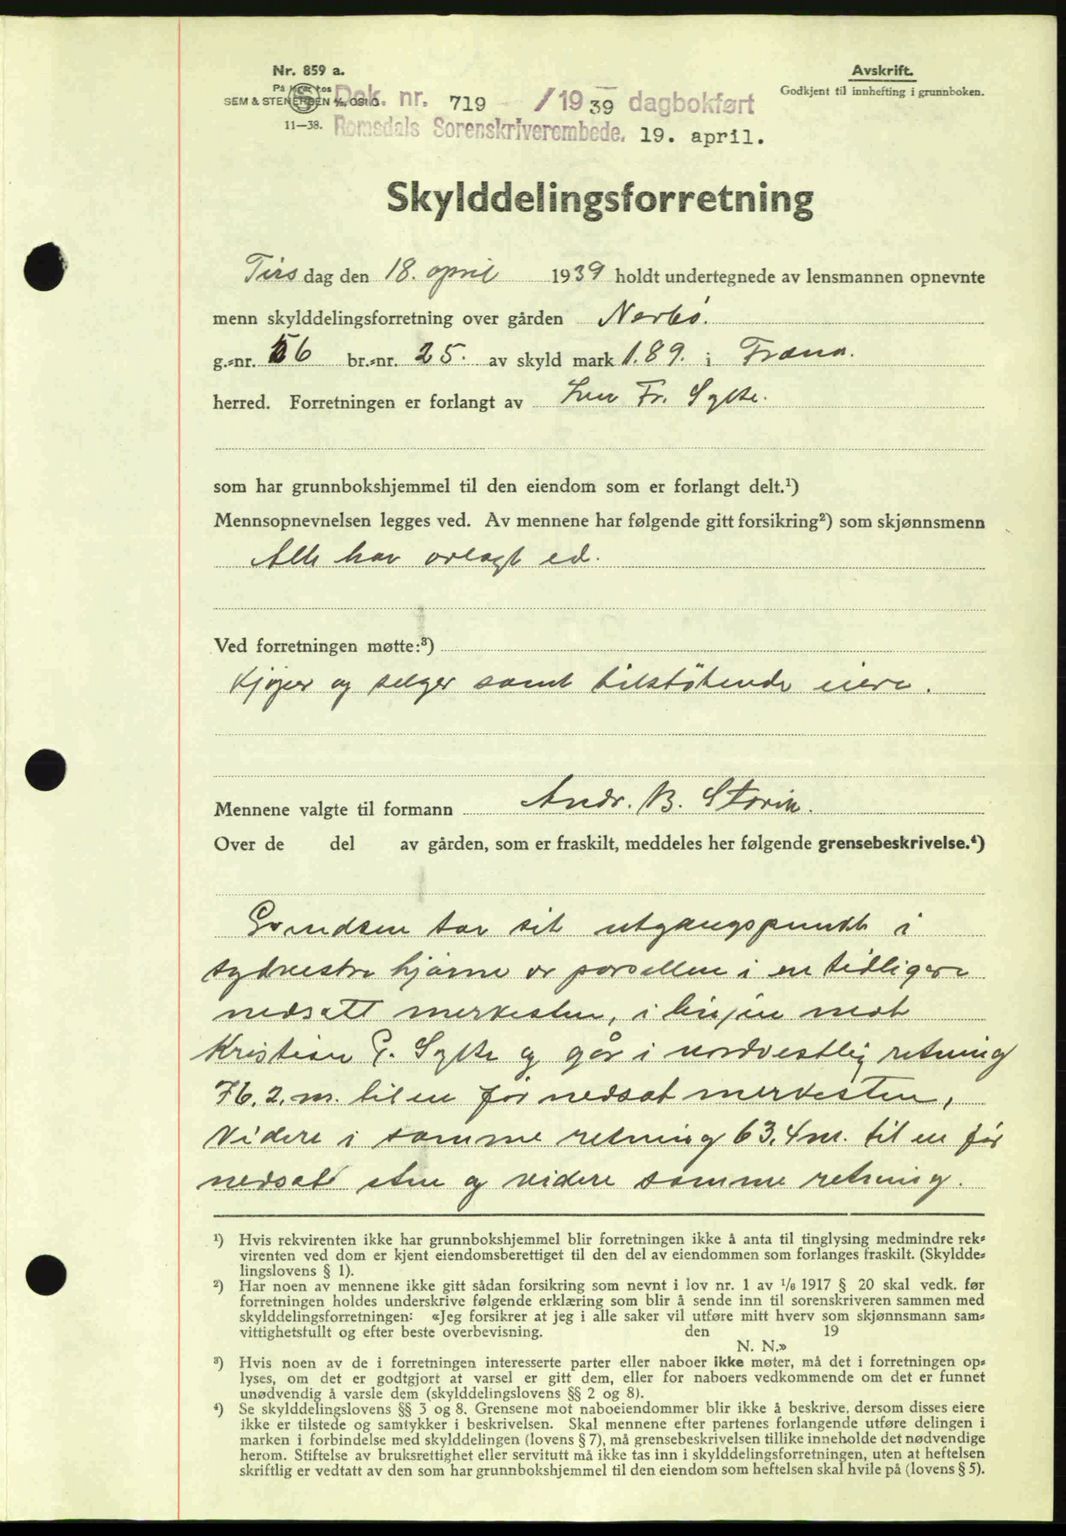 Nr. 859 a.
Avskrift.
På lager hos
SEM & STENERSEN A/S, OSLO
Godkjent til innhefting i grunnboken.
Dok. nr. 719 / 1939 dagbokført
11—38.
Romsdals Sorenskriverembede. 19. april.
Skylddelingsforretning
Tirsdag den 18. april 1939 holdt undertegnede av lensmannen opnevnte
menn skylddelingsforretning over gården Nerbø.
g.-nr. 56 br.-nr. 25. av skyld mark 1.89. i Fræna.
herred. Forretningen er forlangt av Fr. Sylte.
som har grunnbokshjemmel til den eiendom som er forlangt delt.¹)
Mennsopnevnelsen legges ved. Av mennene har følgende gitt forsikring²) som skjønnsmenn
Alle har avlagt ed.
Ved forretningen møtte:³)
Kjøper og selger samt tilstøtende eiere.
Mennene valgte til formann Andr. B. Storvik.
Over de del av gården, som er fraskilt, meddeles her følgende grensebeskrivelse.⁴)
Grendsen tar sit utgangspunkt i
sydvestre hjørne av parsellen i en tidligere
nedsatt merkesten, i linjen mot
Kristian G. Sylte og går i nordvestlig retning
76.2.m. til en før nedsat merkesten,
videre i samme retning 63,4 m. til en før
nedsat sten og videre samme retning.
¹) Hvis rekvirenten ikke har grunnbokshjemmel blir forretningen ikke å anta til tinglysing medmindre rek-
virenten ved dom er kjent eiendomsberettiget til den del av eiendommen som forlanges fraskilt. (Skyldde-
lingslovens § 1).
²) Har noen av mennene ikke gitt sådan forsikring som nevnt i lov nr. 1 av 1/6 1917 § 20 skal vedk. før
forretningen holdes underskrive følgende erklæring som blir å sende inn til sorenskriveren sammen med
skylddelingsforretningen: «Jeg forsikrer at jeg i alle saker vil utføre mitt hverv som skjønnsmann sam-
vittighetsfullt og efter beste overbevisning. den 19
N. N.»
³) Hvis noen av de i forretningen interesserte parter eller naboer ikke møter, må det i forretningen op-
lyses, om det er godtgjort at varsel er gitt dem, eller for naboers vedkommende om det er funnet
unødvendig å varsle dem (skylddelingslovens §§ 2 og 8).
⁴) Se skylddelingslovens §§ 3 og 8. Grensene mot naboeiendommer blir ikke å beskrive, dersom disses eiere
ikke er tilstede og samtykker i beskrivelsen. Skal mennene efter partenes forlangende utføre delingen i
marken i forbindelse med skylddelingen (lovens § 7), må grensebeskrivelsen tillike inneholde det nødvendige
herom. Stiftelse av bruksrettighet eller servitutt må ikke tas inn i skylddelingsforretningen, uten at heftelsen
skriftlig er vedtatt av den som har grunnbokshjemmel til den eiendom som heftelsen skal hvile på (lovens § 5).